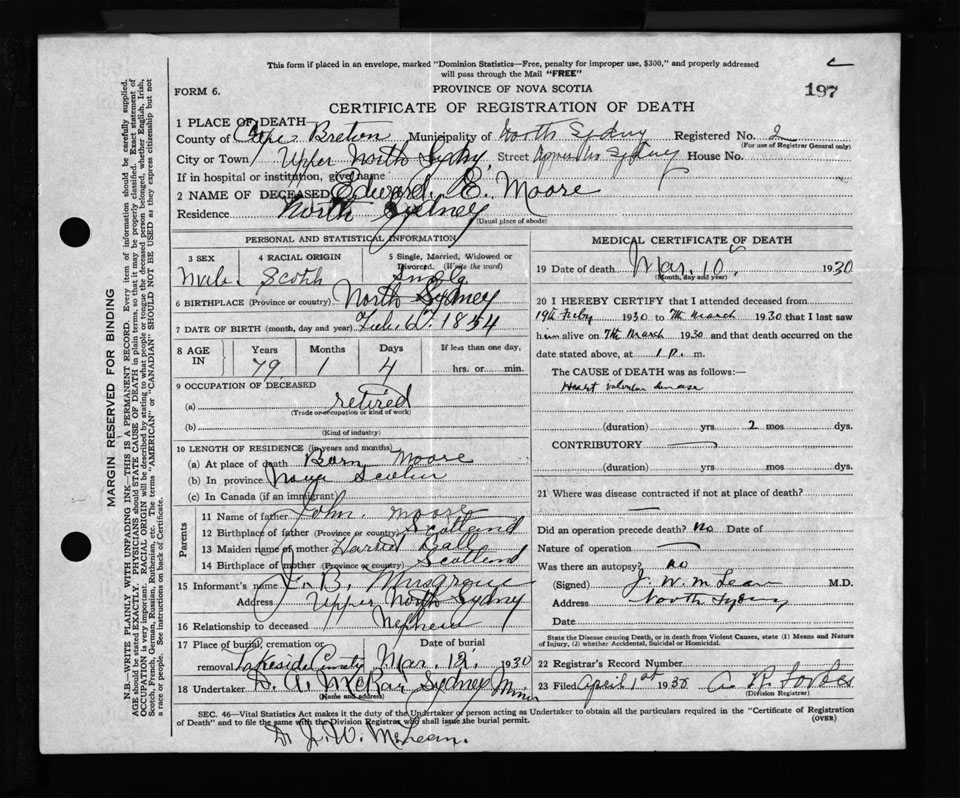 This form if placed in an envelope, marked "Dominion Statistics—Free, penalty for improper use, $300," and properly addressed
will pass through the Mail "FREE"
FORM 6.
PROVINCE OF NOVA SCOTIA
197
CERTIFICATE OF REGISTRATION OF DEATH
1 PLACE OF DEATH
County of Cape Breton Municipality of North Sydney Registered No. 2
(For use of Registrar General only)
City or Town Upper North Sydney Street Upper No Sydney House No.
If in hospital or institution, give name
2 NAME OF DECEASED Edward E. Moore
Residence North Sydney
(Usual place of abode)
PERSONAL AND STATISTICAL INFORMATION
3 SEX 4 RACIAL ORIGIN 5 Single, Married, Widowed or
Divorced. (Write the word)
Male Scotch Single
6 BIRTHPLACE (Province or country) North Sydney
7 DATE OF BIRTH (month, day and year) Feb. 6, 1854
8 AGE IN Years Months Days If less than one day,
79 1 4 hrs. or min.
9 OCCUPATION OF DECEASED
(a) retired
(Trade or occupation or kind of work)
(b)
(Kind of industry)
10 LENGTH OF RESIDENCE (in years and months)
(a) At place of death Born Moore
(b) In province Nova Scotia
(c) In Canada (if an immigrant)
Parents
11 Name of father John Moore
12 Birthplace of father (Province or country) Scotland
13 Maiden name of mother Harriet Ball
14 Birthplace of mother (Province or country) Scotland
15 Informant's name J. B. Musgrave
Address Upper North Sydney
16 Relationship to deceased Nephew
17 Place of burial, cremation or Date of burial
removal Lakeside Mar. 12. 1930
18 Undertaker D. A. McRae Sydney Mines
(Name and address)
MEDICAL CERTIFICATE OF DEATH
19 Date of death Mar. 10 1930
(Month, day and year)
20 I HEREBY CERTIFY that I attended deceased from
19th Feby 1930 to 7th March 1930 that I last saw
him alive on 7th March 1930 and that death occurred on the
date stated above, at 1 p. m.
The CAUSE of DEATH was as follows:—
Heart valvular disease
(duration) yrs. 2 mos dys.
CONTRIBUTORY
(duration) yrs. mos. dys.
21 Where was disease contracted if not at place of death?
Did an operation precede death? No Date of
Nature of operation
Was there an autopsy? No
(Signed) J. W. McLean M.D.
Address North Sydney
Date
State the Disease causing Death, or in death from Violent Causes, state (1) Means and Nature
of Injury, (2) whether Accidental, Suicidal or Homicidal.
22 Registrar's Record Number
23 Filed April 1st 1930 A. R. Forbes
(Division Registrar)
SEC. 46—Vital Statistics Act makes it the duty of the Undertaker or person acting as Undertaker to obtain all the particulars required in the "Certificate of Registration
of Death" and to file the same with the Division Registrar who shall issue the burial permit.
(OVER)
Dr. J. W. McLean.
MARGIN RESERVED FOR BINDING
N.B.—WRITE PLAINLY WITH UNFADING INK—THIS IS A PERMANENT RECORD. Every item of information should be carefully supplied.
AGE should be stated EXACTLY. PHYSICIANS should STATE CAUSE OF DEATH in plain terms, so that it may be properly classified. Exact statement of
OCCUPATION is very important. RACIAL ORIGIN will be described by stating to what people or tongue the deceased person belonged, whether English, Irish,
Scotch, French, German, Russian, Ruthenian, etc. The terms "AMERICAN" or "CANADIAN" SHOULD NOT BE USED as they express citizenship but not
a race or people. See instructions on back of Certificate.